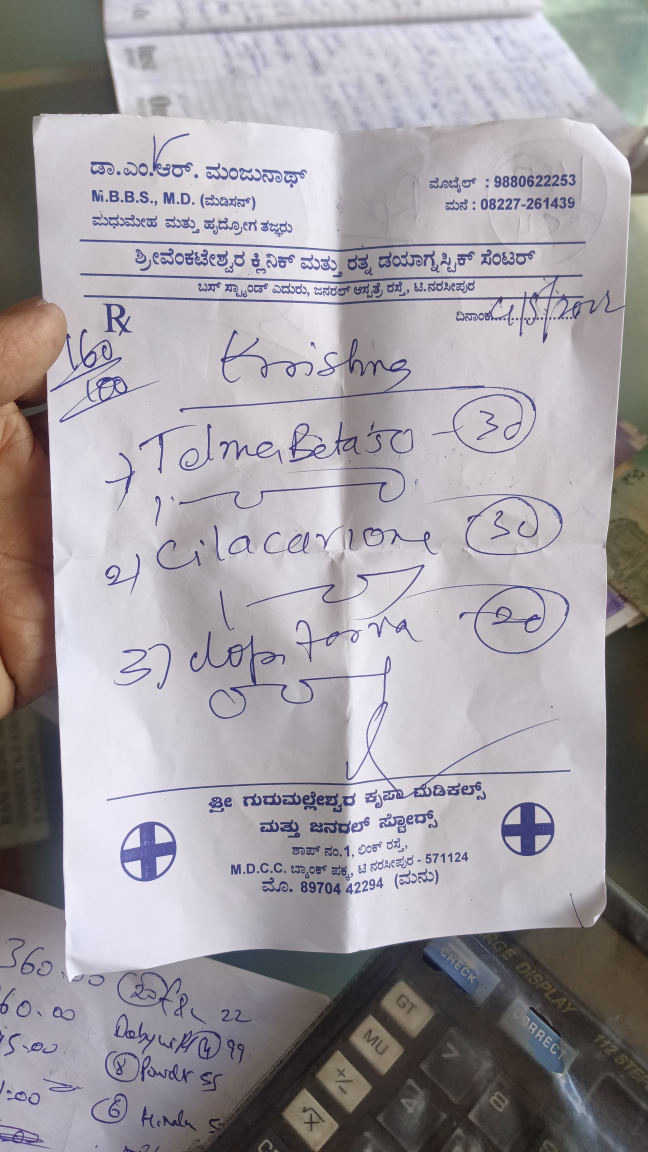 ಡಾ.ಎಂ.ಆರ್. ಮಂಜುನಾಥ್
M.B.B.S., M.D. (ಮೆಡಿಸನ್)
ಮಧುಮೇಹ ಮತ್ತು ಹೃದ್ರೋಗ ತಜ್ಞರು
ಮೊಬೈಲ್ : 9880622253
ಮನೆ : 08227-261439
ಶ್ರೀವೆಂಕಟೇಶ್ವರ ಕ್ಲಿನಿಕ್ ಮತ್ತು ರತ್ನ ಡಯಾಗ್ನಸ್ಟಿಕ್ ಸೆಂಟರ್
ಬಸ್ ಸ್ಟ್ಯಾಂಡ್ ಎದುರು, ಜನರಲ್ ಆಸ್ಪತ್ರೆ ರಸ್ತೆ, ಟಿ.ನರಸೀಪುರ
Rx
ದಿನಾಂಕ
160
100
Krishna
1) Telma Beta 50 - 30
2) Cilacar 30
3) - 20
ಶ್ರೀ ಗುರುಮಲ್ಲೇಶ್ವರ ಕೃಪಾ ಮೆಡಿಕಲ್ಸ್
ಮತ್ತು ಜನರಲ್ ಸ್ಟೋರ್ಸ್
ಶಾಪ್ ನಂ.1, ಲಿಂಕ್ ರಸ್ತೆ,
M.D.C.C. ಬ್ಯಾಂಕ್ ಪಕ್ಕ, ಟಿ ನರಸೀಪುರ - 571124
ಮೊ. 89704 42294 (ಮನು)
360.00
60.00
5.00
:00
20 22
4 99
8 Powder 55
6
CHECK
CORRECT
GE DISPLAY
112 STEP
GT
MU
+/-
√x
7
4
8